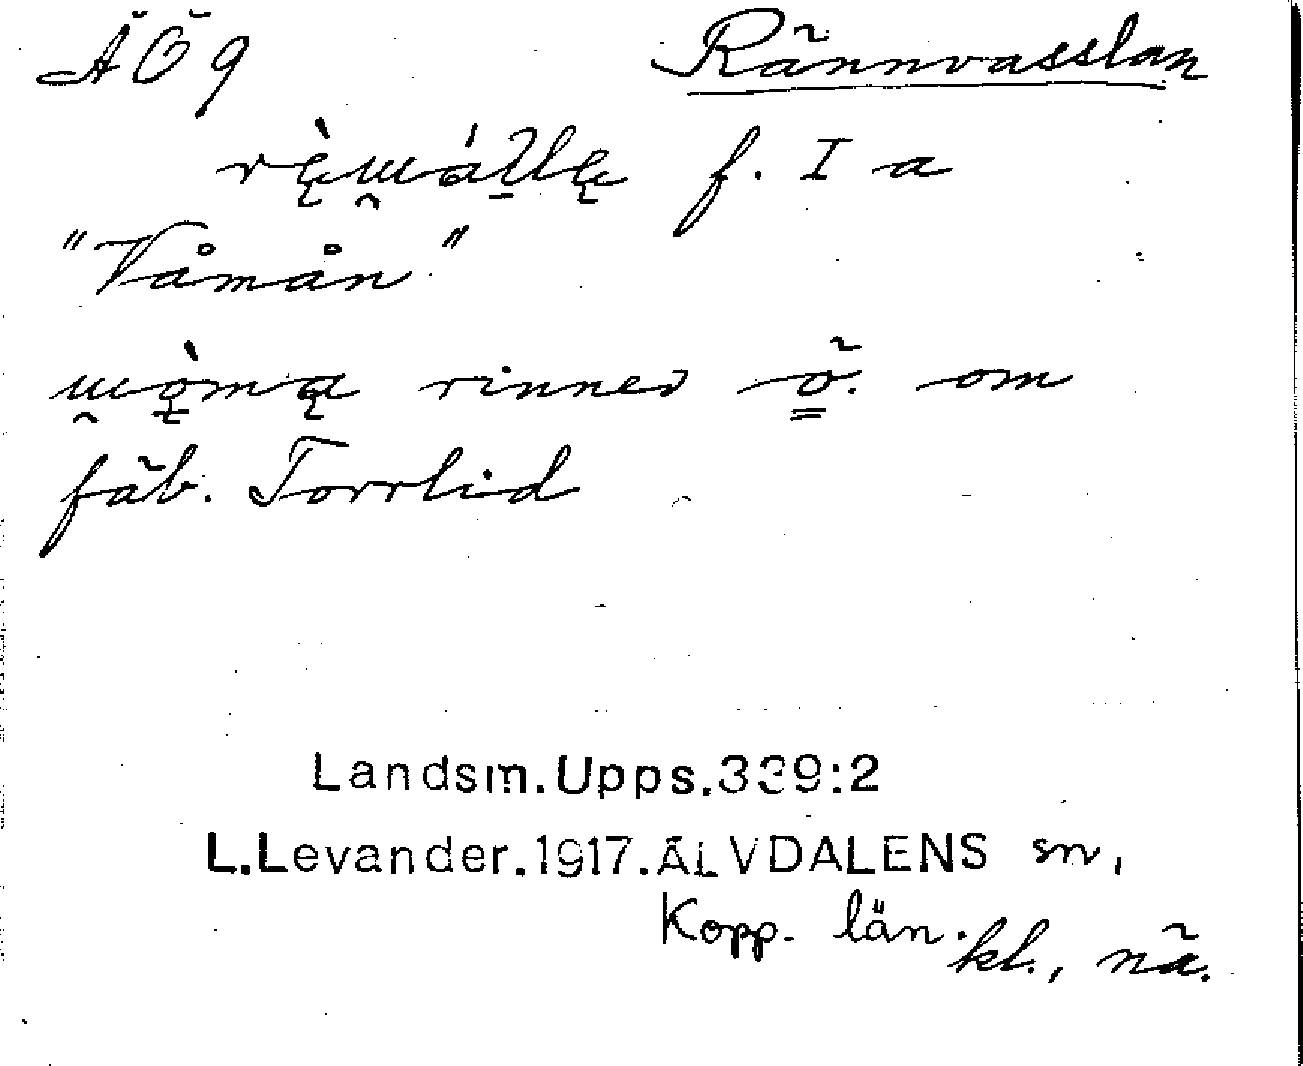 ÄÖ 9 Rännvasslan
f. I a
"Våmån"
rinner ö. om
fäb. Torrlid
Landsm.Upps.339:2
L.Levander.1917.ÄLVDALENS sn,
Kopp. län. kl., nä.